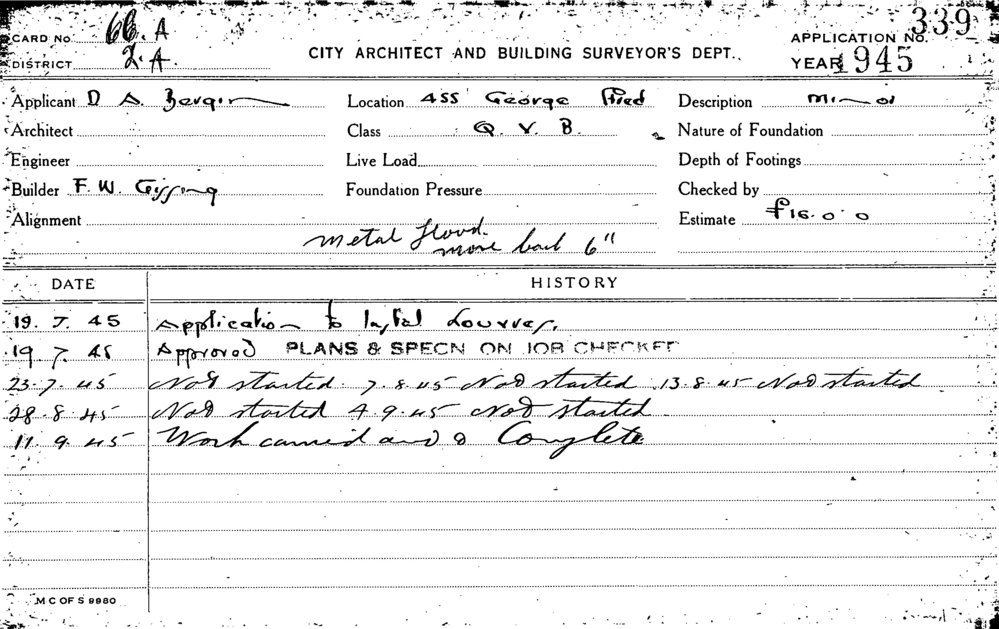 CARD No. 66. A
DISTRICT 2. A.
CITY ARCHITECT AND BUILDING SURVEYOR'S DEPT.
APPLICATION No. 339
YEAR 1945
Applicant D A Bergin Location 455 George Description Minor
Architect Class Q. V. B. Nature of Foundation
Engineer Live Load Depth of Footings
Builder F. W. Gissing Foundation Pressure Checked by
Alignment Estimate £16.0.0
metal
6"
DATE HISTORY
19. 7. 45 Application to Louvres.
19 7. 45 Approved PLANS & SPECN ON JOB CHECKED
23. 7. 45 Not started. 7. 8. 45 Not started. 13. 8. 45 Not started
28. 8. 45 Not started 4. 9. 45 Not started.
11. 9. 45 Work carried Complete
M C OF S 9980